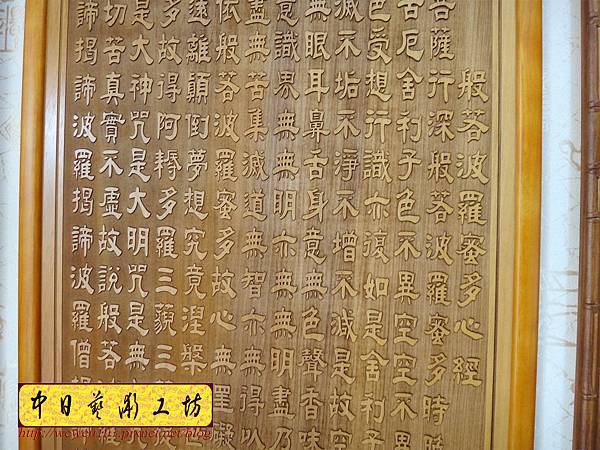 般若波羅蜜多心經
菩薩行深般若波羅蜜多時
苦厄舍利子色不異空空不異
色受想行識亦復如是舍利子
滅不垢不淨不增不減是故空
無眼耳鼻舌身意無色聲香味
意識界無無明亦無無明盡乃
盡無苦集滅道無智亦無得以
依般若波羅蜜多故心無罣礙
遠離顛倒夢想究竟涅槃
多故得阿耨多羅三藐三
是大神咒是大明咒是無
切苦真實不虛故說般若
諦揭諦波羅揭諦波羅僧揭
中日藝彫工坊